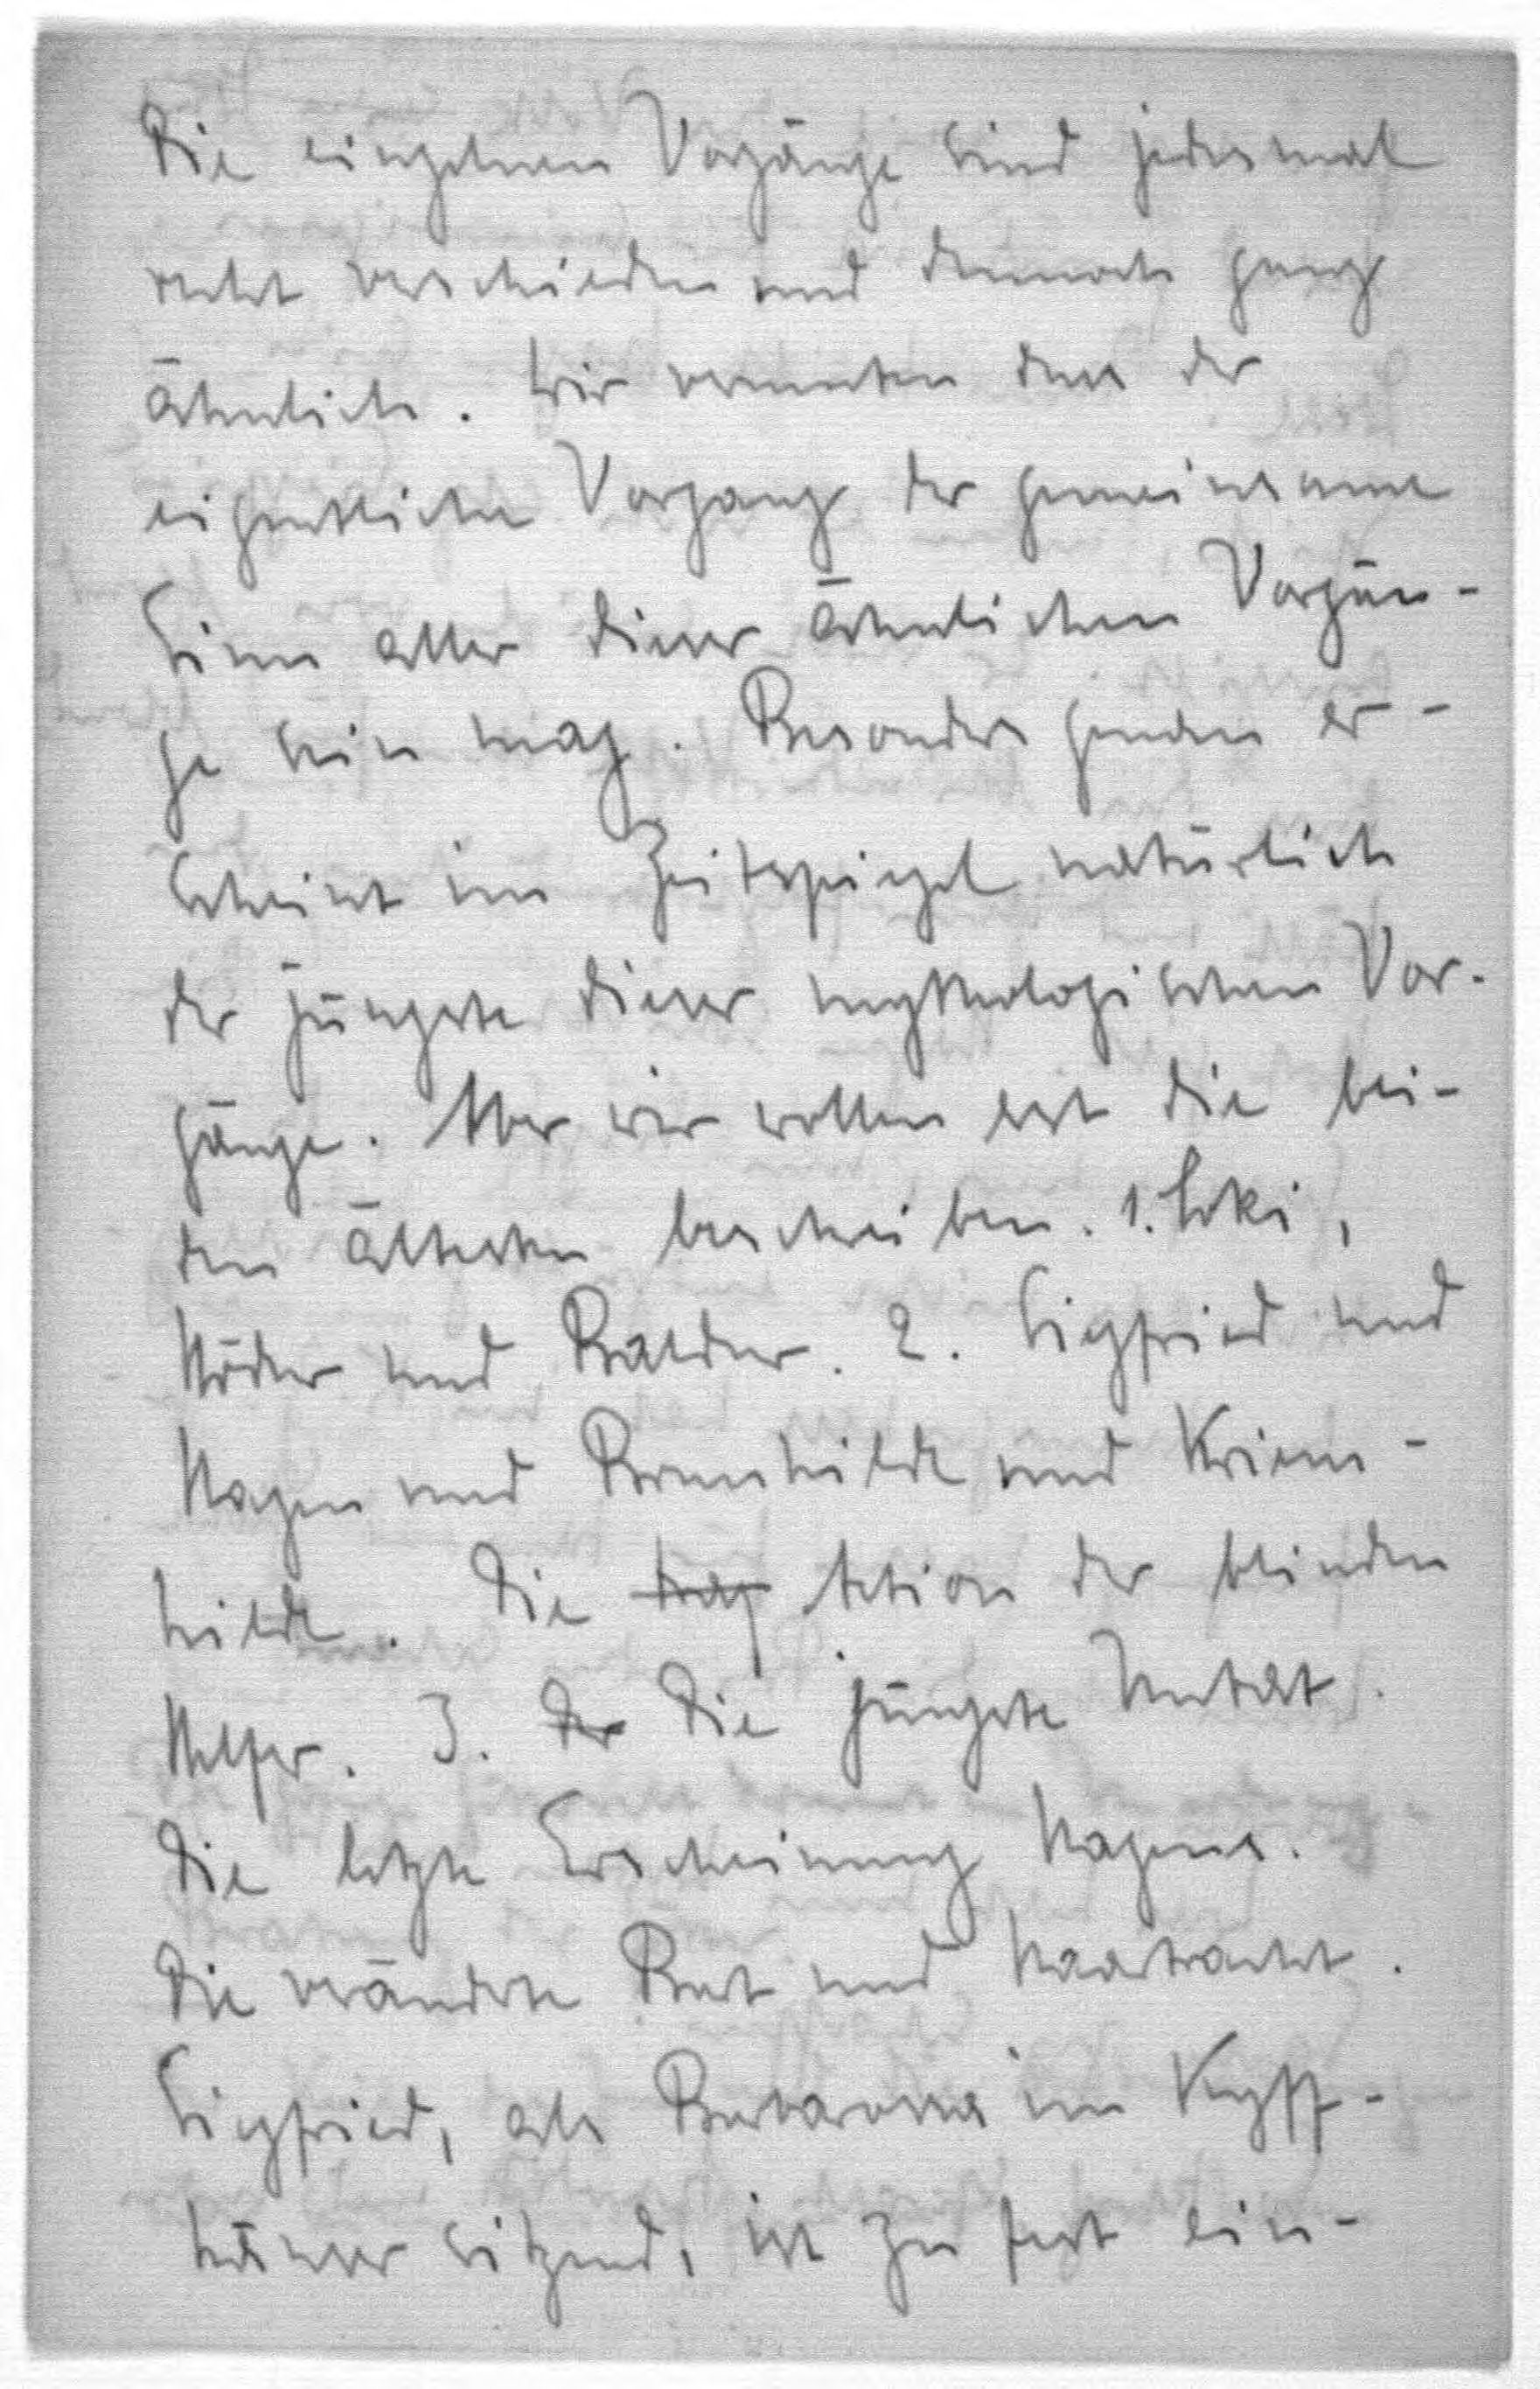 Die einzelnen Vorgänge sind jedesmal
recht verschieden und dennoch ganz
ähnlich. Wir vermuten dass der
eigentliche Vorgang der gemeinsame
Sinn aller dieser ähnlichen Vorgän-
ge sein mag. Besonders genau er-
scheint im Zeitspiegel natürlich
der jüngste dieser mythologischen Vor-
gänge. Aber wir wollen erst die bei-
den ältesten beschreiben. 1. Loki,
Höder und Balder. 2. Sigfried und
Hagen und Brunhilde und Kriem-
hilde. Die Aktion der blinden
Helfer. 3. der Die jüngste Untat.
Die letzte Erscheinung Hagens.
Die veränderte Bart und Haartracht.
Sigfried, als Barbarossa im Kyff-
häuser sitzend, ist zu fest ein-